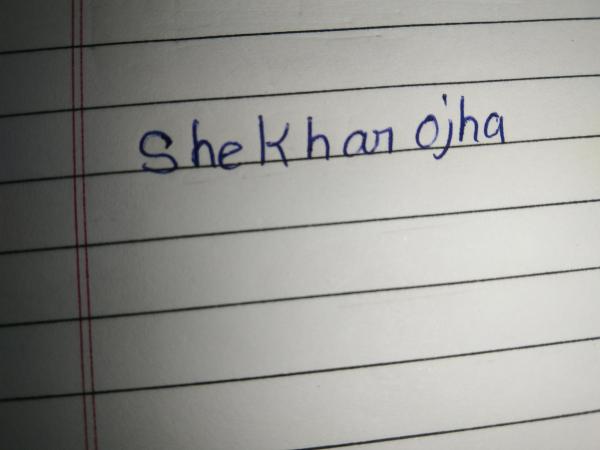 Shekhar ojha